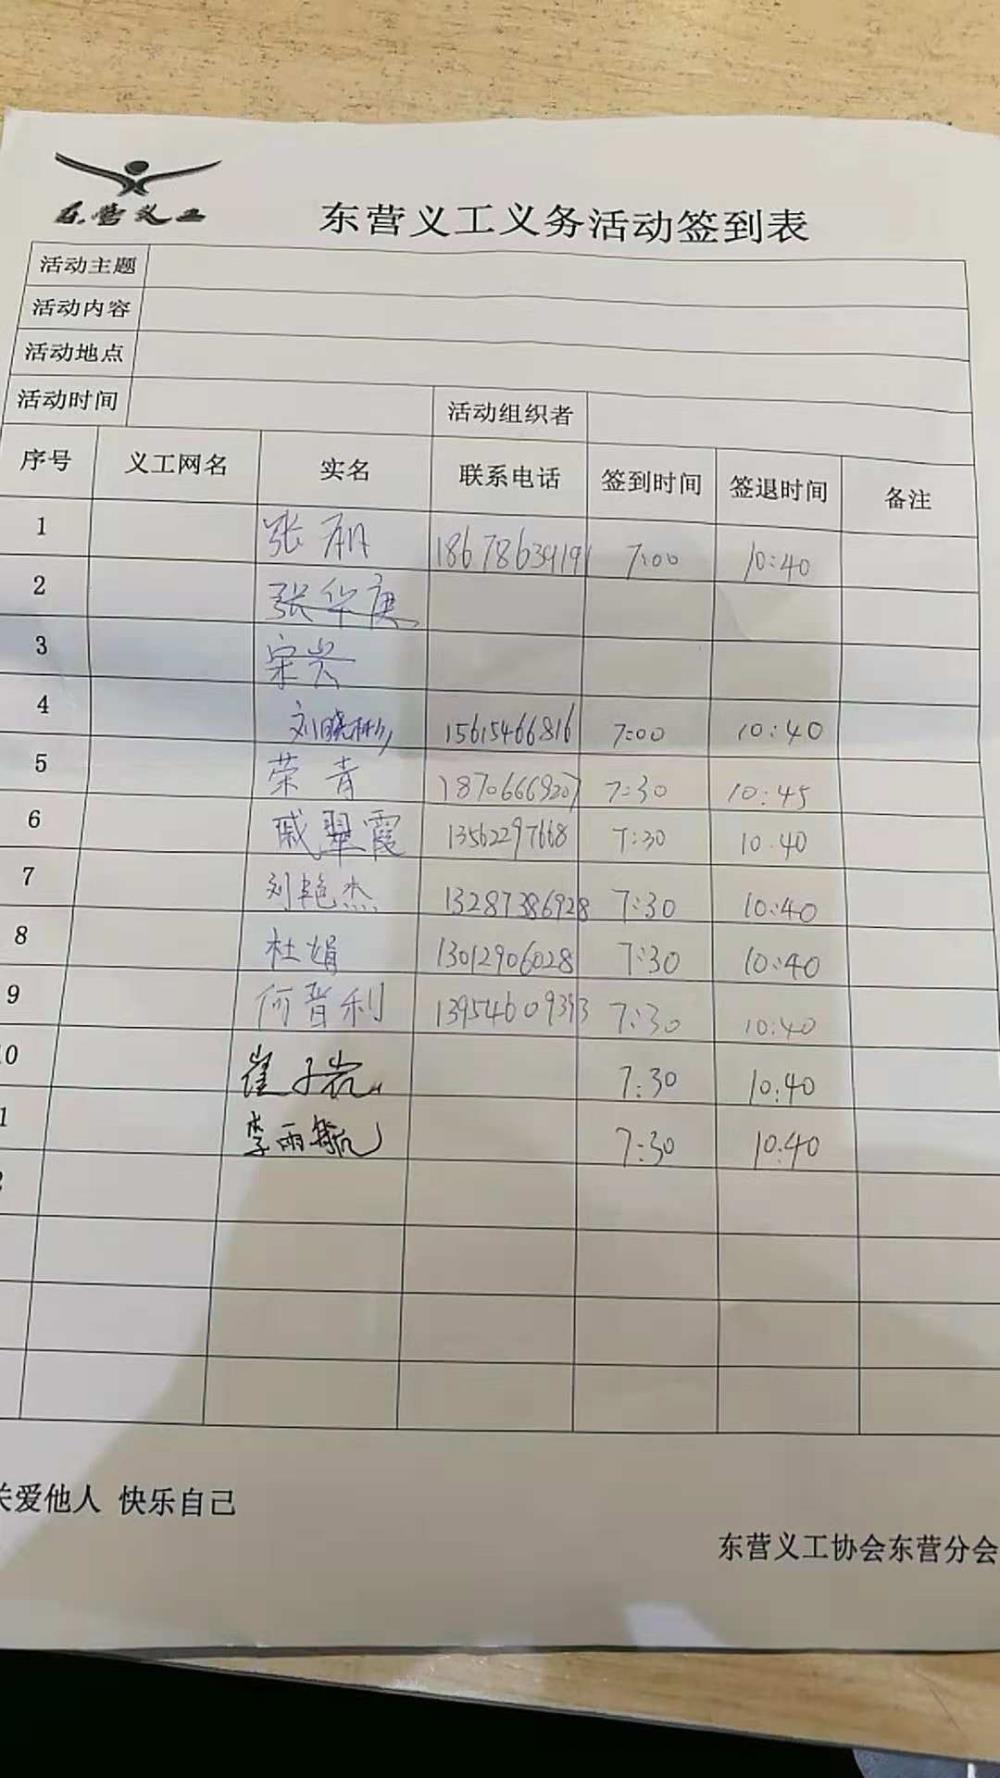 东营义工
东营义工义务活动签到表
活动主题
活动内容
活动地点
活动时间 活动组织者
序号 义工网名 实名 联系电话 签到时间 签退时间 备注
1 张 18678639191 7:00 10:40
2 张华庚
3 宋兴
4 刘晓彬 15615466816 7:00 10:40
5 荣青 18706669207 7:30 10:45
6 戚翠霞 13562297668 7:30 10.40
7 刘艳杰 13287386928 7:30 10:40
8 杜娟 13012906028 7:30 10:40
9 何晋利 13954609393 7:30 10:40
0 崔子岩 7:30 10:40
1 李雨航 7:30 10:40
关爱他人 快乐自己
东营义工协会东营分会